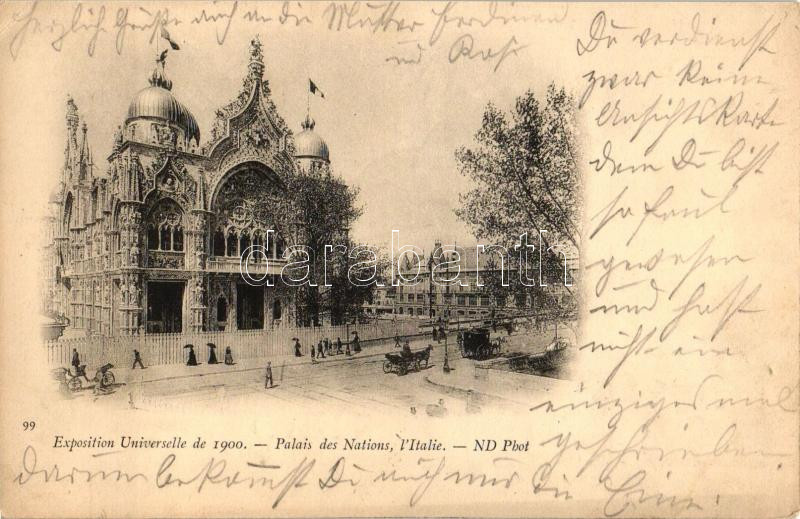 Herzlich Grüße auch an die Mutter Ferdinen
und Rosi
Du verdienst
zwar keine
Ansichtskarte
denn Du bist
so faul
gewesen
und hast
nicht ein
einziges mal
geschrieben
darum bekommst Du auch nur die Eine!
darabanth.com
99
Exposition Universelle de 1900. — Palais des Nations, l'Italie. — ND Phot